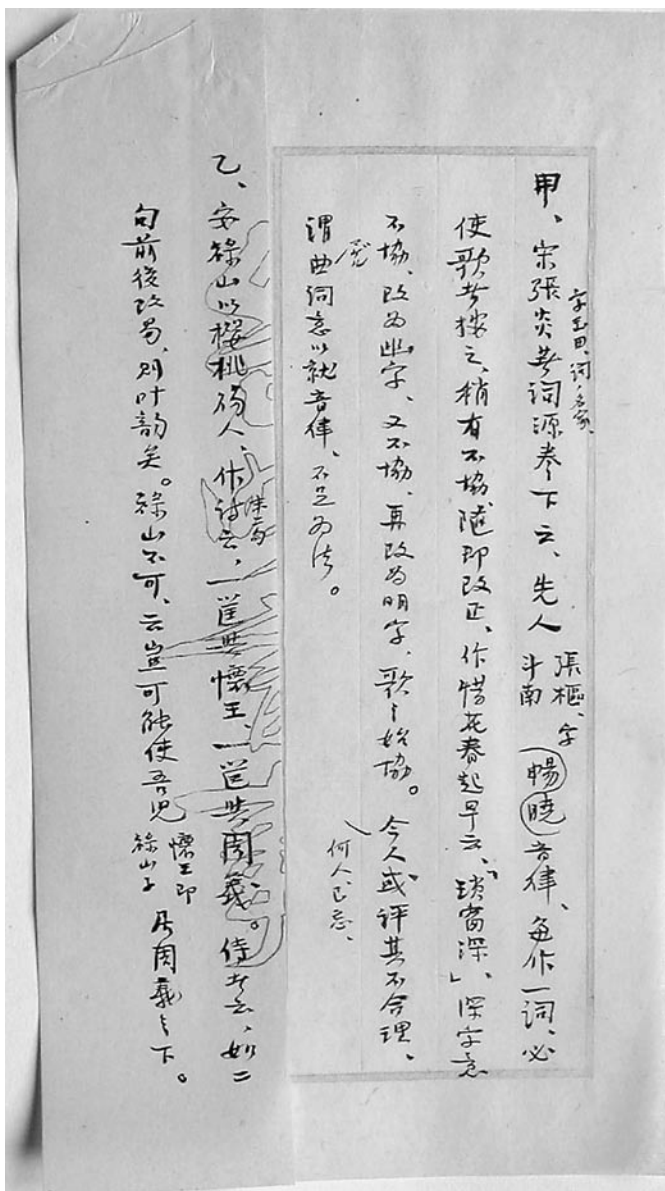 字玉田、詞名家、
甲、宋張炎著詞源卷下云、先人張樞、字斗南暢曉音律、每作一詞、必
使歌者按之、稍有不協、隨即改正、作惜花春起早云、「瑣窗深」、深字意
不協、改为幽字、又不協、再改为明字、歌之始協。今人或評其不合理、
何人已忘、
謂曲詞意以就音律、不足为法。
乙、安祿山以櫻桃賜人、作詩云、一筐與懷王、一筐與周義。侍者云、如二
句前後改易、則叶韵矣。祿山不可、云豈可能使吾兒懷王即祿山子居周義之下。